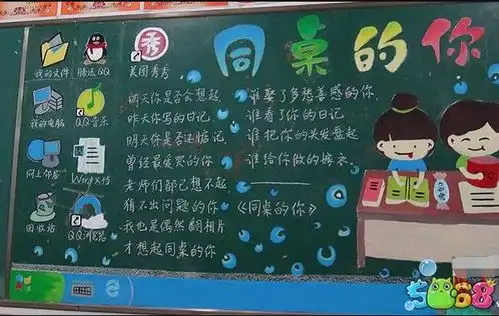 同桌的你
我的文件
腾迅QQ
秀
美图秀秀
我的电脑
QQ音乐
网上邻居
Word文档
回收站
QQ浏览器
明天你是否会想起
昨天你写的日记
明天你是否还惦记
曾经最爱哭的你
老师们都已想不起
猜不出问题的你
我也是偶然翻相片
才想起同桌的你
谁娶了多愁善感的你
谁看了你的日记
谁把你的长发盘起
谁给你做的嫁衣
《同桌的你》
5068